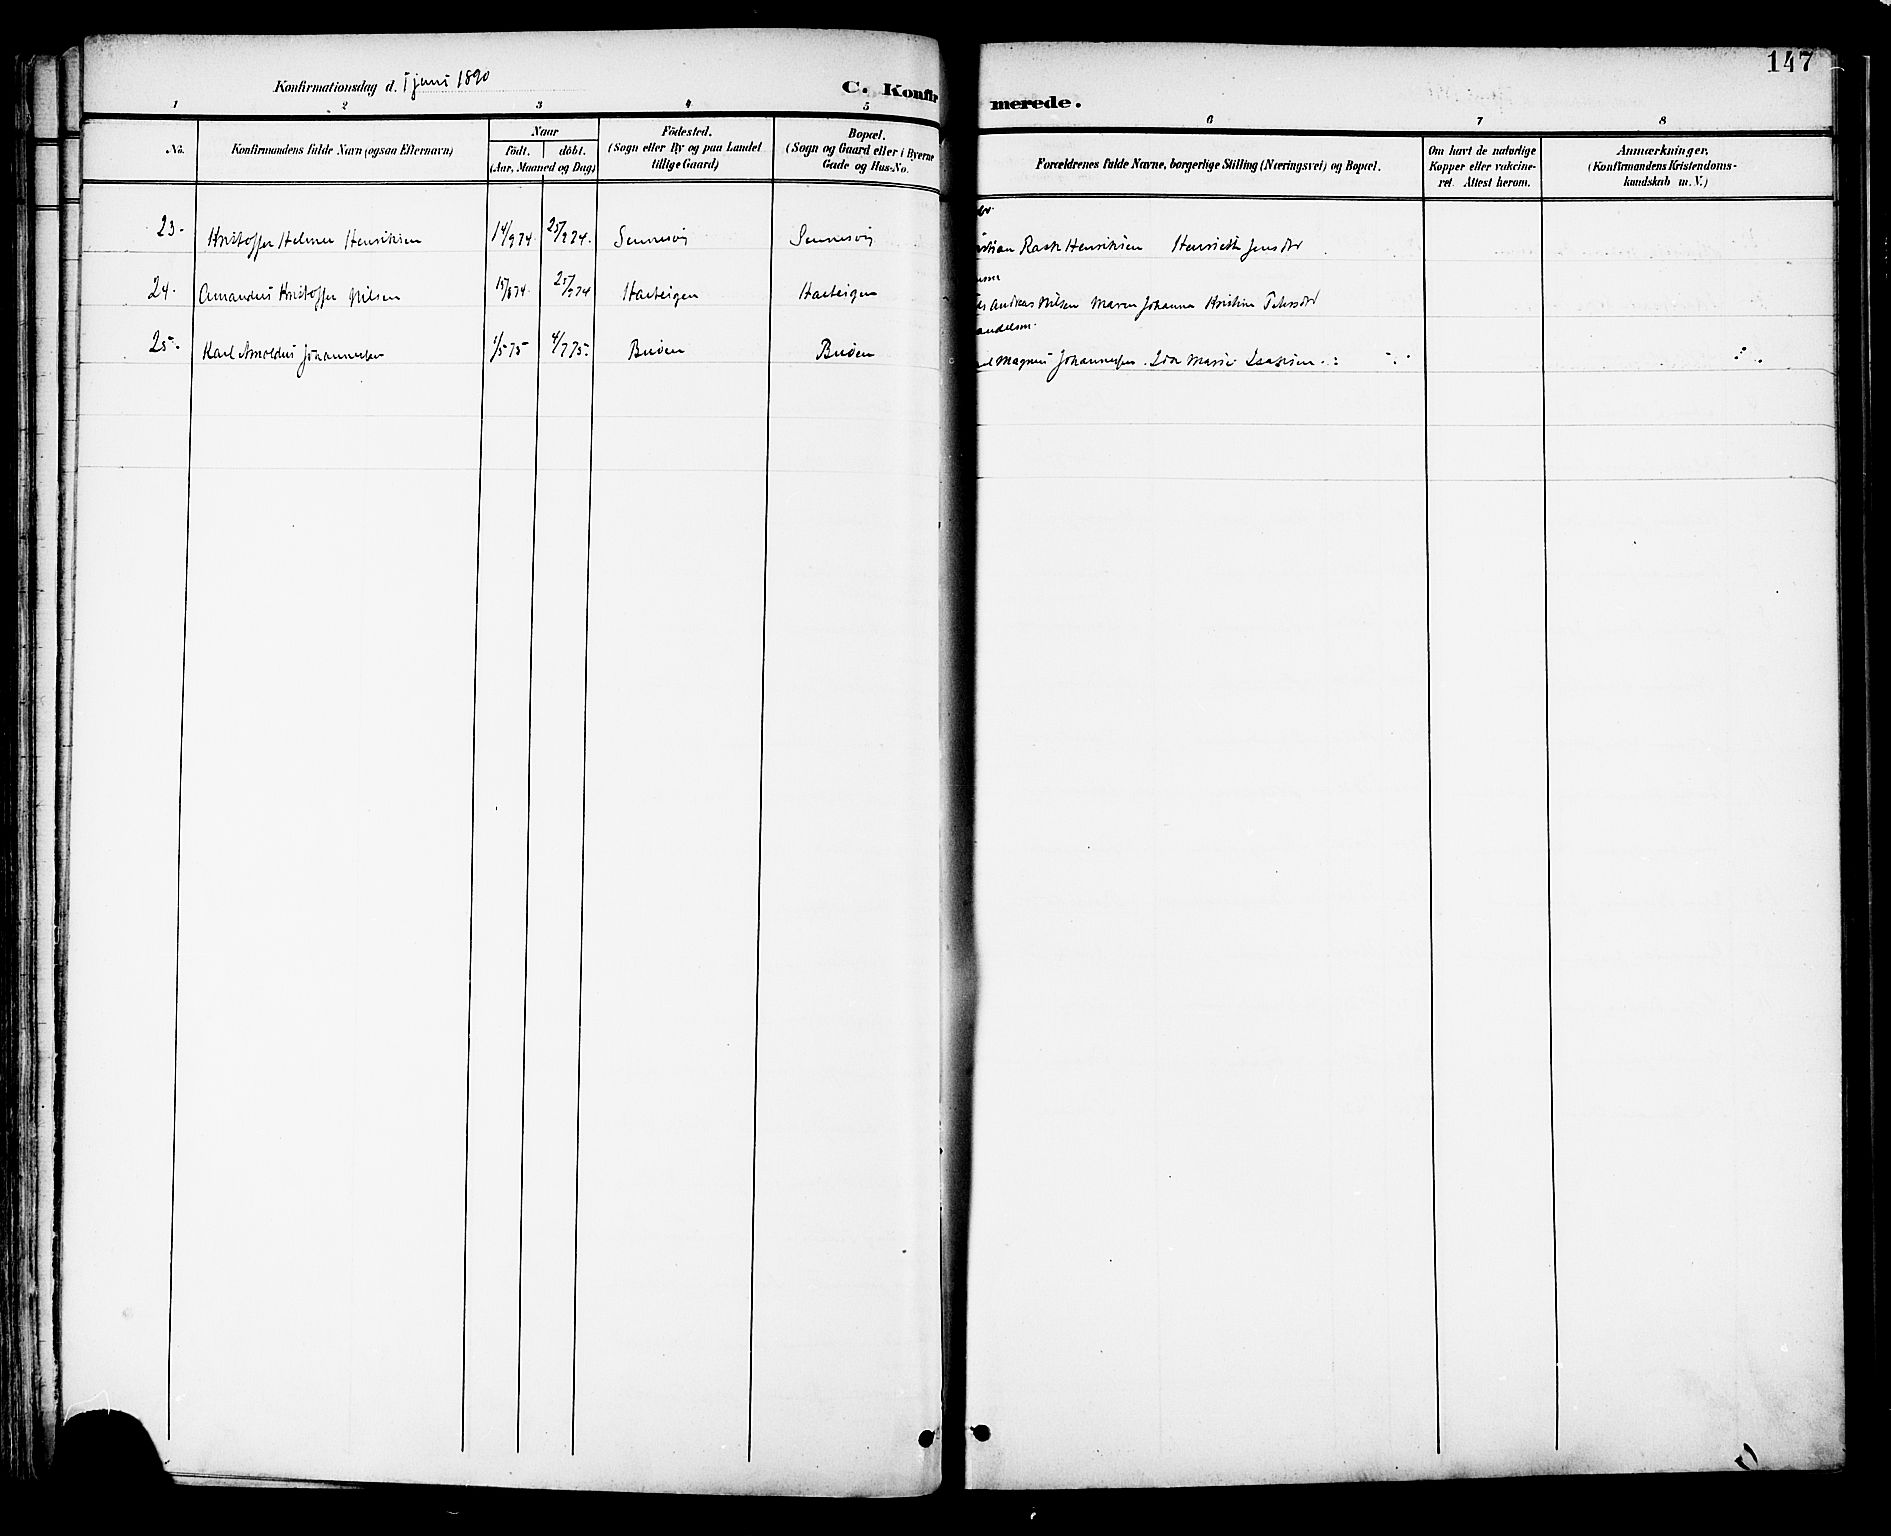 147
Konfirmationsdag d. 1 juni 1890
C. Konfirmerede.
1 2 3 4 5 6 7 8
No. Konfirmandens fulde Navn (ogsaa Efternavn) Naar födt. döbt. (Aar, Maaned og Dag) Födested. (Sogn eller By og paa Landet tillige Gaard) Bopæl. (Sogn og Gaard eller i Byerne Gade og Hus-No. Forældrenes fulde Navne, borgerlige Stilling (Næringsvei) og Bopæl. Om havt de naturlige Kopper eller vakcineret. Attest herom. Anmærkninger. (Konfirmandens Kristendomskundskab m. V.)
23. Kristoffer Helmer Henriksen 14/9 74. 25/9 74. Sennesvig Sennesvig Rask Henriksen Henriette Jensdtr
24. Amandus Kristoffer Nilsen 15/8 74. 25/9 74 Harteigen Harteigen Andreas Nilsen Maren Johanna Kristine Petersdtr
25. Karl Arnoldus Johannessen 1/5 75 4/7 75. Buöen Buöen Magnus Johannessen. Ida Marie Isaksen